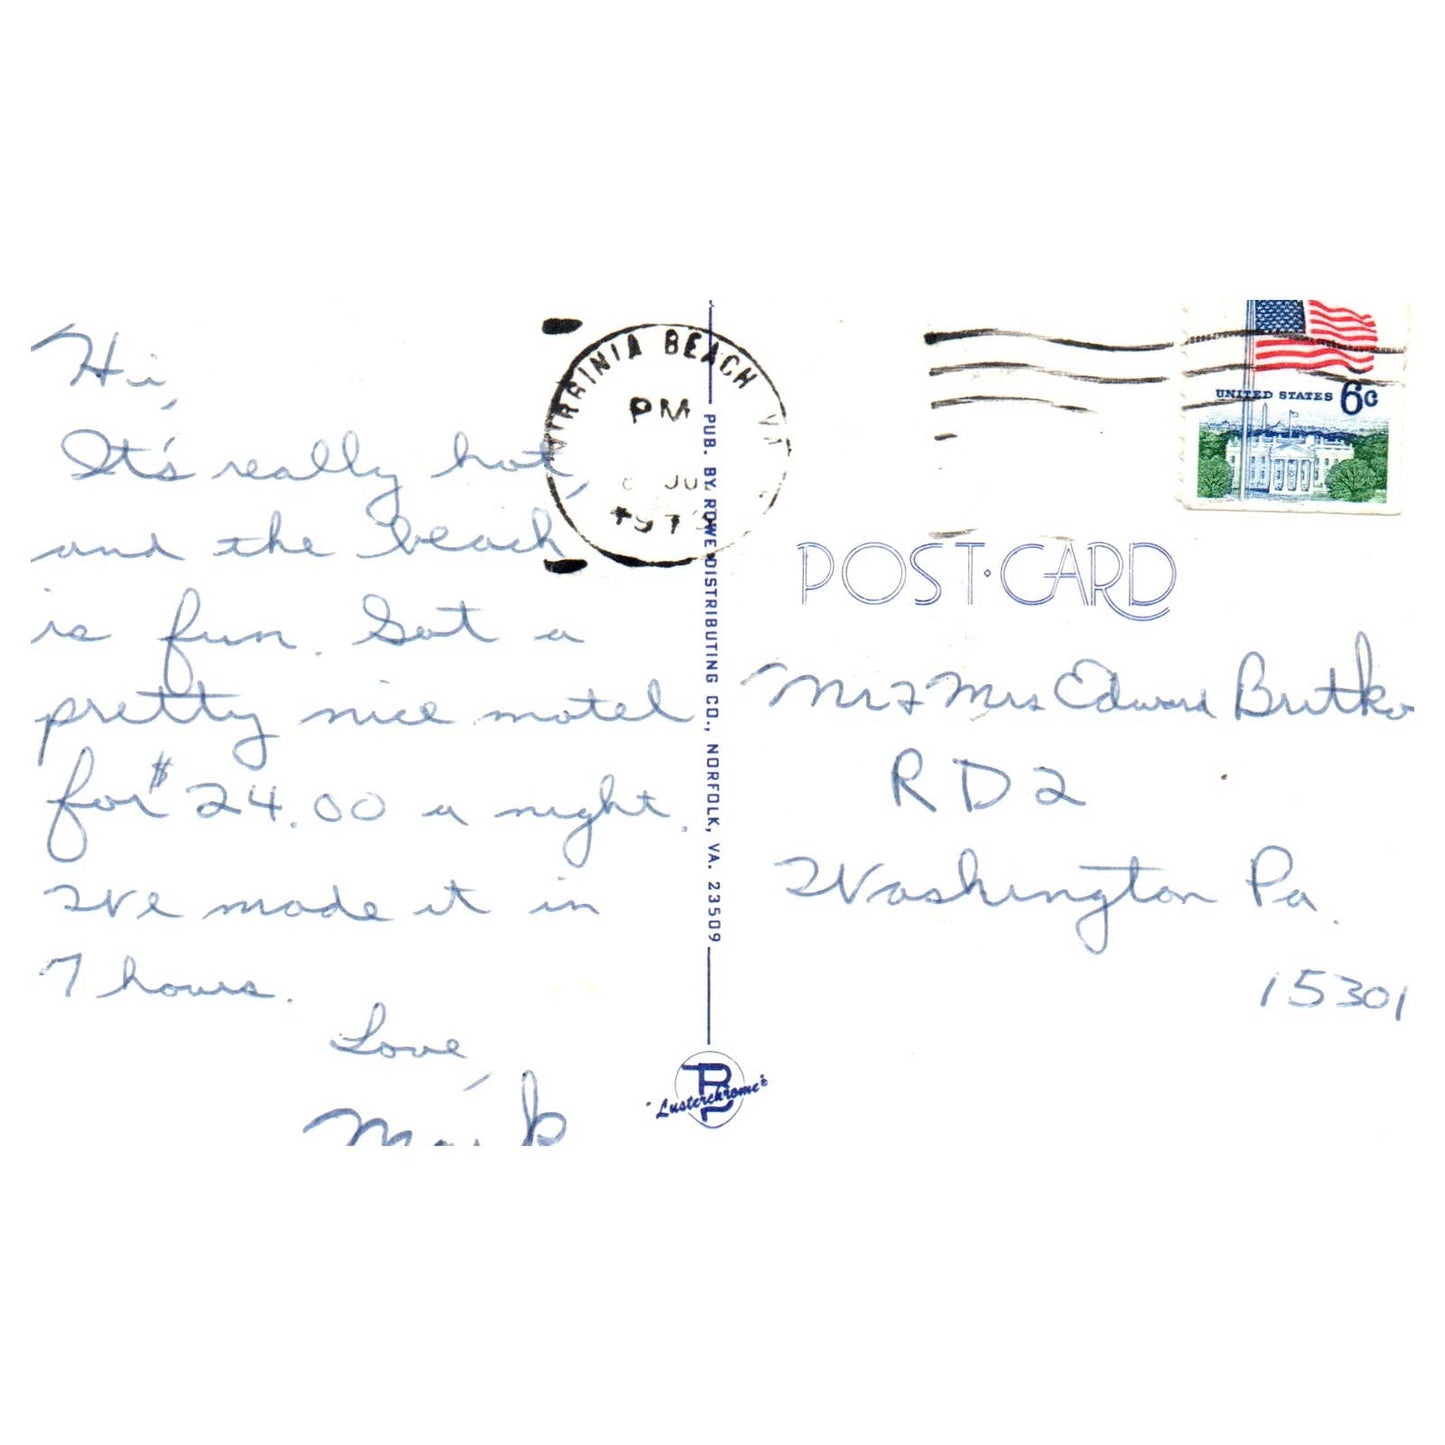 Hi,
It's really hot,
and the beach
is fun. Got a
pretty nice motel
for $24.00 a night.
We made it in
7 hours.
Love,
Mark
VIRGINIA BEACH VA
PM
JU
197
PUB. BY ROWE DISTRIBUTING CO., NORFOLK, VA. 23509
"Lusterchrome"
UNITED STATES 6c
POST·CARD
Mr & Mrs Edward Brutko
RD2
Washington Pa.
15301